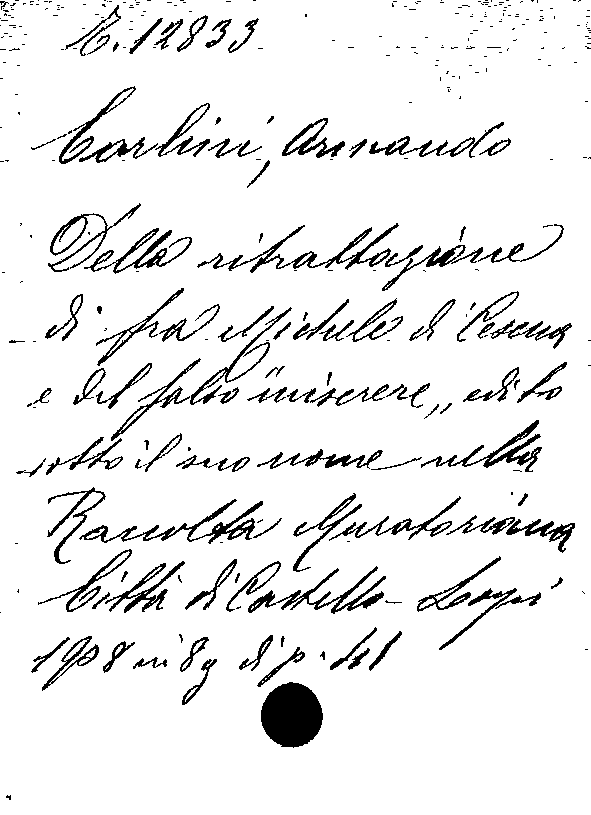 E. 12833
Carlini, Armando
Della ritrattazione
di fra Michele di Cesena
e del falso "miserere„ edito
sotto il suo nome nella
Raccolta Muratoriana
Città di Castello - Lapi
1908 in 8º di p. 41